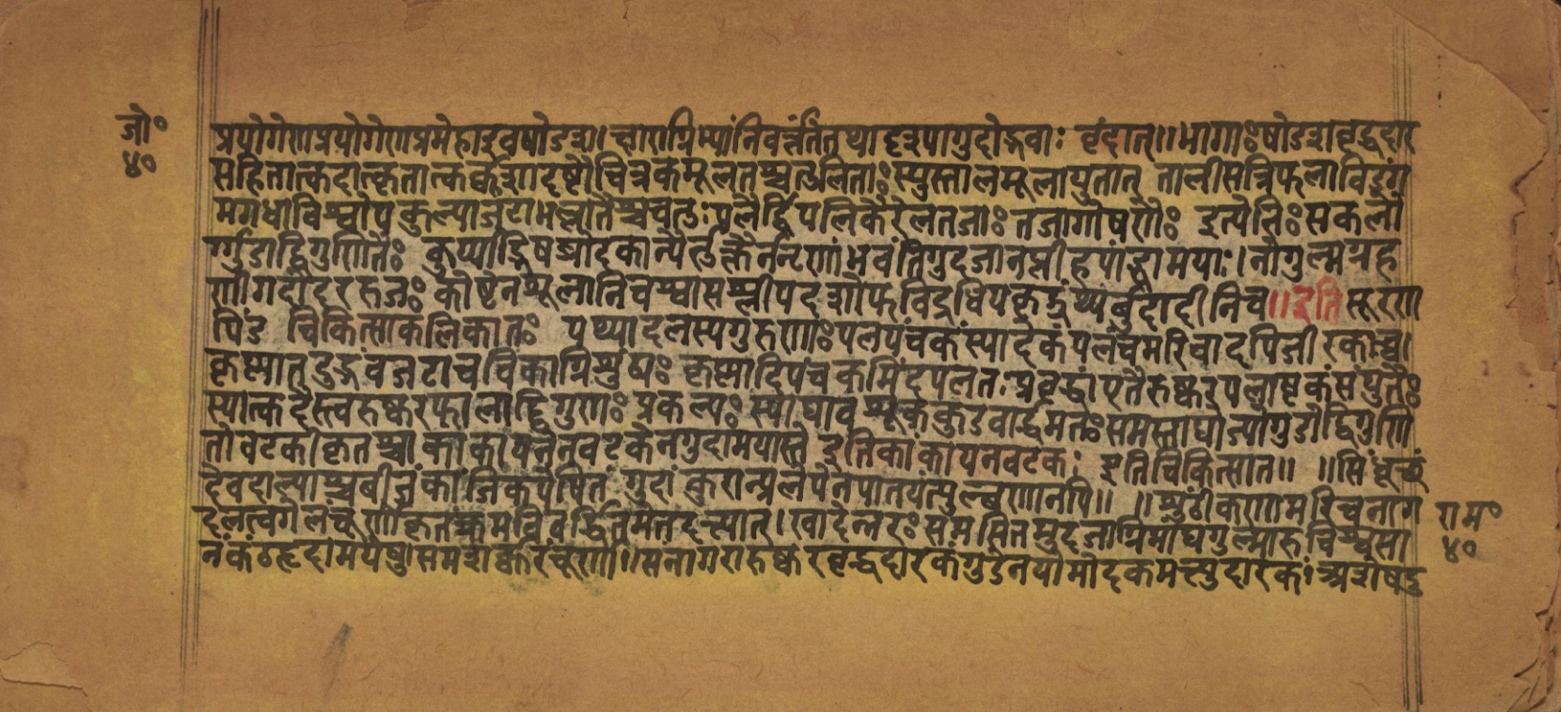 जो॰
४०
प्रयोगेणप्रयोगेणप्रमेहाइवषोडश। क्षाराग्निभ्यांनिवर्त्तंतेतथादृश्यागुदोद्भवाः वृंदात्॥ भागाःषोडशवृद्धदार
सहितात्कदात्कृतात्कर्कशादष्टौचित्रकमूलतश्चतुलिताःस्युस्तालमूलायुतात् तालीसत्रिफलाविडंग
मगधाविश्वोपकुल्याजटाभल्लातैश्चचतुःपलैर्द्विपलिकैरेलतजाः तजागोषणैः इत्येतैःसकलै
र्गुडाद्विगुणितैः कुर्य्याद्भिषग्मोदकान्ये र्नृणांभवंतिगुदजानप्लीहपांड्वामयाः। नोगुल्मग्रह
णीगदोदररुजः कोष्ठेनशूलानिचश्वासश्लीपदशोफविद्रधिपकृद्ग्रंथ्यर्बुदादीनिच॥इति सूरण
पिंड चिकित्साकलिकातः पथ्यादलस्यगुरुणःपलपंचकंस्यादेकंपलंचमरिचादपिजीरकाच्च।
कृष्णातदुद्भवजटाचविकाग्निशुंठ्यः कृष्णादिपंचकमिदंपलतःप्रवृद्धांएतैरुष्करपलाष्टकसंयुतैः
स्यात्कंदैस्त्वरुष्करफलाद्द्विगुणः प्रकल्प्यः स्याद्यावशूककुडवार्द्धमतःसमस्ताद्योज्योगुडोद्विगुणि
तोवटकीकृतश्च। कांकायनेनवटकेनगुदामयास्ते इतिकांकायनवटकः इतिचिकित्सात॥ ॥सिंधूत्थं
देवदाल्याश्चबीजंकांजिकपेषितं गुदांकुरान्प्रलेपेनपातयेत्युल्बणानपि॥ ॥शुंठीकणामरिचनाग
दलत्वगेलंचूर्णीकृतंक्रमविवर्द्धितमेतदंत्यात्। खादेन्नरःसमसितंगुदजाग्निमांद्यगुल्मारुचिश्वसा
नकंठहृदामयेषु।समशर्करचूर्ण॥ सनागरारुष्करवृद्धदारकंगुडेनयोमोदकमत्त्युदारकः अशेषदु
राम॰
४०